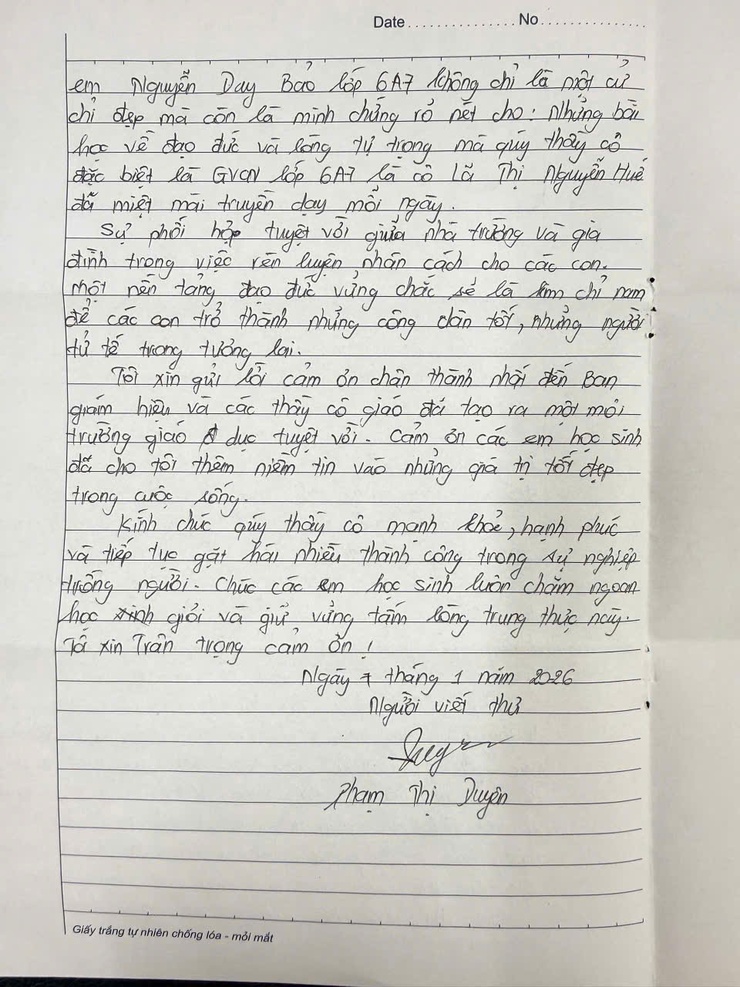 Date No
em Nguyễn Day Bảo lớp 6A7 không chỉ là một cử
chỉ đẹp mà còn là minh chứng rỏ nét cho: Những bài
học về đạo đức và lòng tự trọng mà quý thầy cô
đặc biệt là GVCN lớp 6A7 là cô Lã Thị Nguyễn Huế
đã miệt mài truyền dạy mỗi ngày.
Sự phối hợp tuyệt vời giữa nhà trường và gia
đình trong việc rèn luyện nhân cách cho các con.
một nền tảng đạo đức vững chắc sẽ là kim chỉ nam
để các con trở thành những công dân tốt, những người
tử tế trong tương lai.
Tôi xin gửi lời cảm ơn chân thành nhất đến Ban
giám hiệu và các thầy cô giáo đã tạo ra một môi
trường giáo dục tuyệt vời. Cảm ơn các em học sinh
đã cho tôi thêm niềm tin vào những giá trị tốt đẹp
trong cuộc sống.
Kính chúc quý thầy cô mạnh khoẻ, hạnh phúc
và tiếp tục gặt hái nhiều thành công trong sự nghiệp
trồng người. Chúc các em học sinh luôn chăm ngoan
học giỏi và giữ vững tấm lòng trung thực này.
Tôi xin Trân trọng cảm ơn!
Ngày 7 tháng 1 năm 2026
Người viết thư
Phạm Thị Duyên
Giấy trắng tự nhiên chống lóa - mỏi mắt